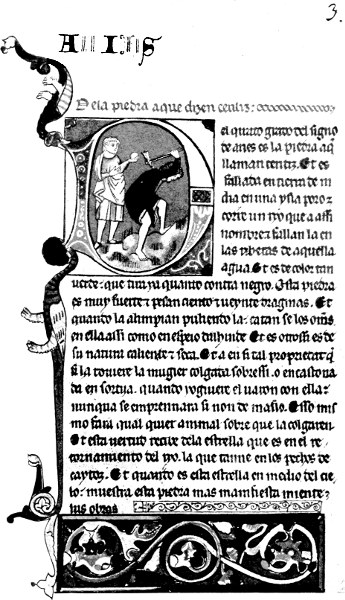 3.
ARIES
De la piedra a que dizen
el quarto grado del signo
de aries es la piedra a q̃
llaman Et es
fallada en tierra de in
dia en una ysla por o
corre un ryo que a assi
nombre z fallan la en
las riberas de aquella
agua. Et es de color tan
uerde: que tira ya quanto contra negro. Esta piedra
es muy fuerte z pesan ciento z ueynte dragmas. Et
quando la alimpian puliendo la: catan se los om̃s
en ella assi como en espeio Et es otrossi es de
su natura caliente z seca. Et a en si tal propriedat q̃
si la touiere la mugier colgada sobressi. o en castona
da en sortija. quando yoguiere el uaron con ella:
nunqua se emprennara si non de maslo. Esso mis
mo fara qual quier animal sobre que la colgaren.
Et esta uertud recibe de la estrella que es en el re
tornamiento del ryo. la que tanne en los pechos de
caytoz. Et quanto es esta estrella en medio del cie
lo: muestra esta piedra mas manifiesta miente
sus obras